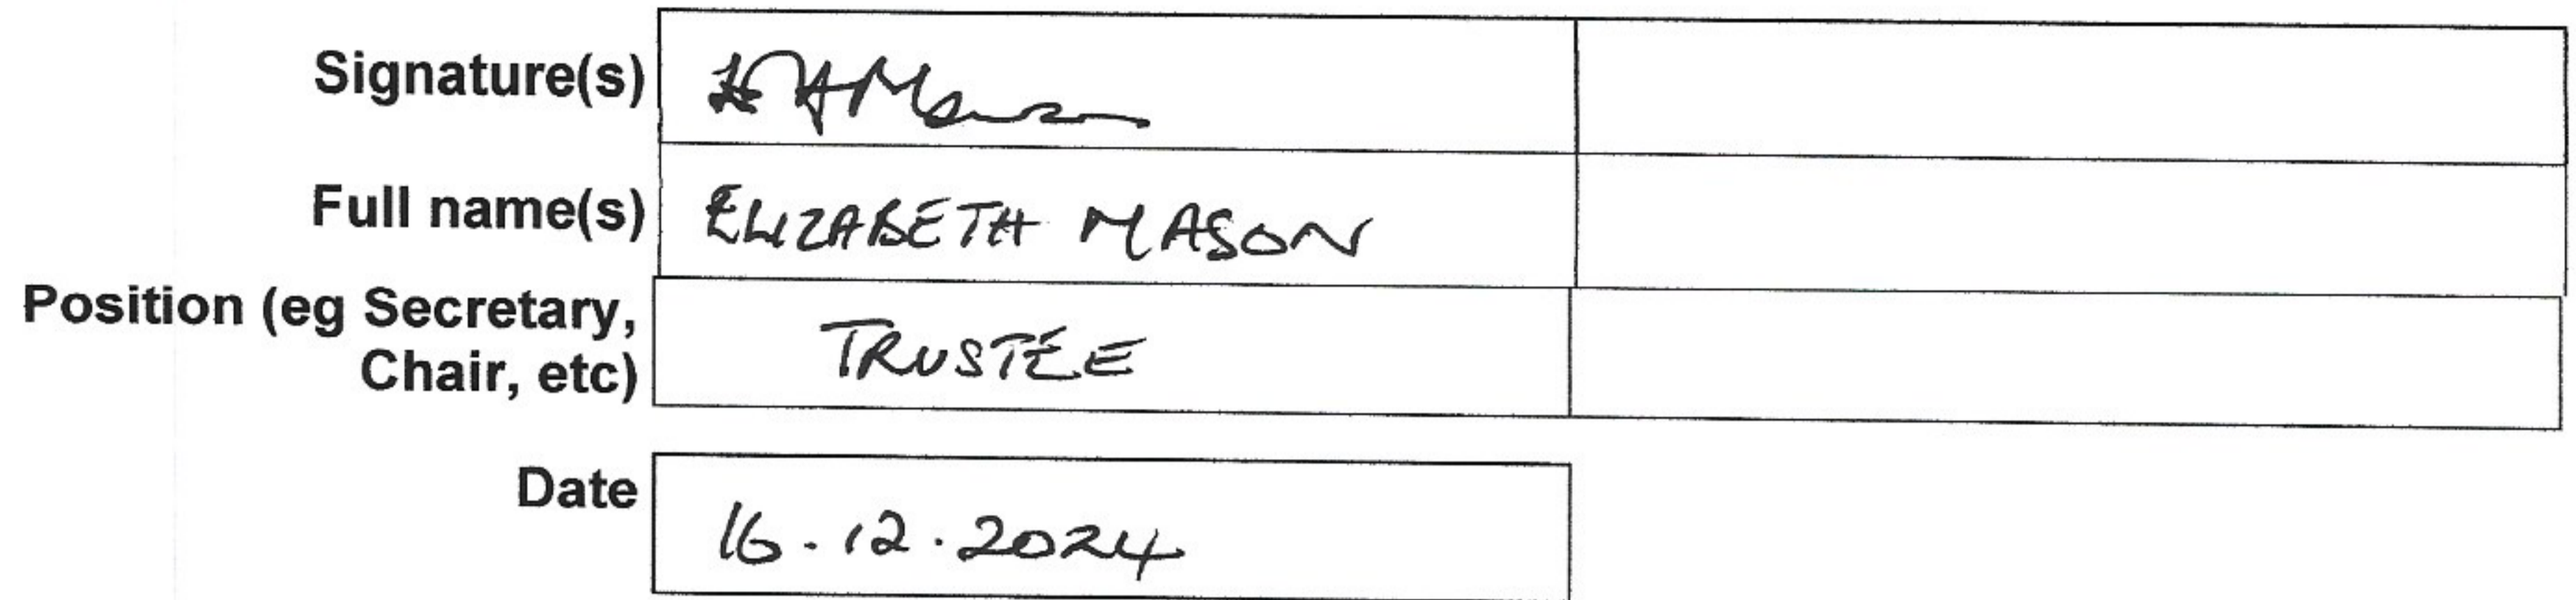 Signature(s)
Full name(s) ELIZABETH MASON
Position (eg Secretary,
Chair, etc) TRUSTEE
Date 16.12.2024